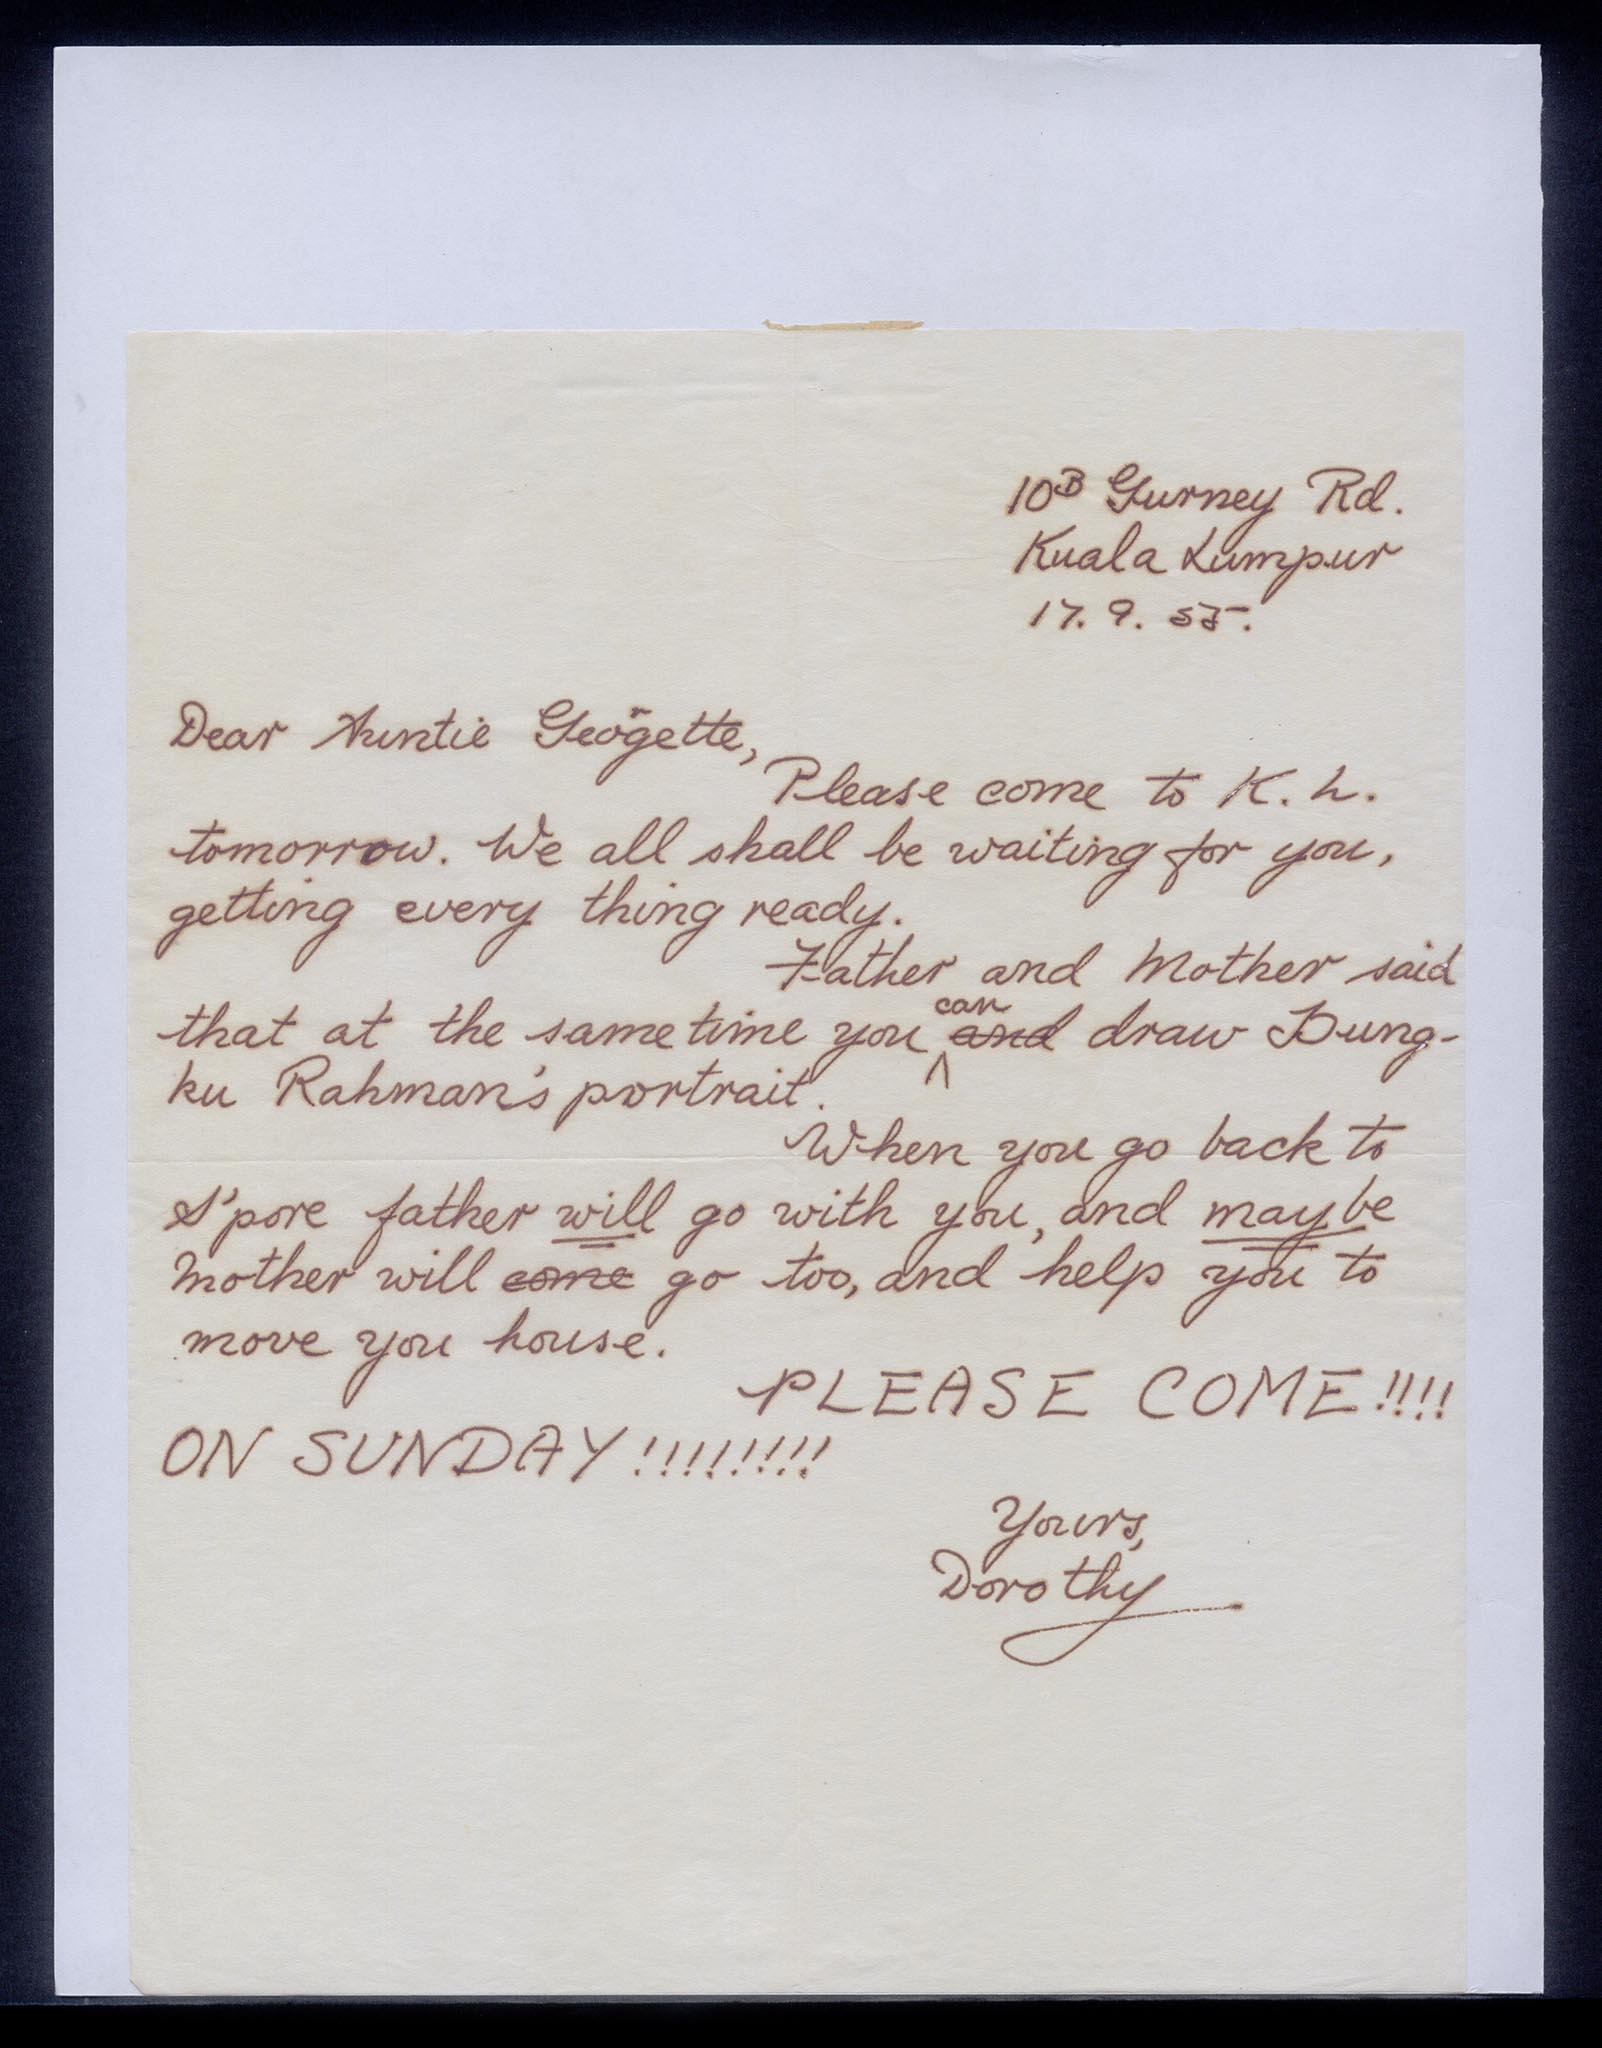 10B Gurney Rd.
Kuala Lumpur
17. 9. 55.
Dear Auntie Georgette,
Please come to K. L.
tomorrow. We all shall be waiting for you,
getting every thing ready.
Father and Mother said
that at the same time you can and draw Dung-
ku Rahman's portrait.
When you go back to
S'pore father will go with you, and maybe
Mother will come go too, and help you to
move you house.
PLEASE COME!!!!
ON SUNDAY!!!!!!!!
Yours,
Dorothy